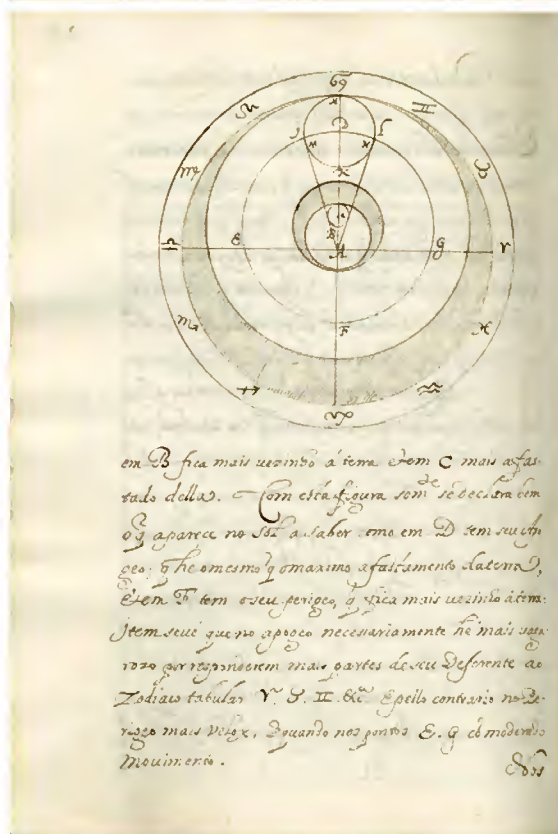 ♋
♌ ♊
D
♍ ♉
I L
K
B
♎ E A G ♈
F
♏ ♓
♐ ♒
♑
em B fica mais uezinho á terra e em C mais afas-
tado della. Com esta figura som.te se declara bem
o q̃ aparece no Sol a saber como em D tem seu Apo
geo; q̃ he o mesmo q̃ o maximo afastamento da terra,
E em F tem o seu perigeo, q̃ fica mais uezinho á terra:
Item se ue que no apogeo necessariamente he mais uaga-
rozo por responderem mais partes de seu Deferente ao
Zodiaco tabular ♈. ♉. ♊. &c.ª E pello contrario no Pe-
rigeo mais Velox, e quando nos pontos E. G cõ moderado
Movimento.